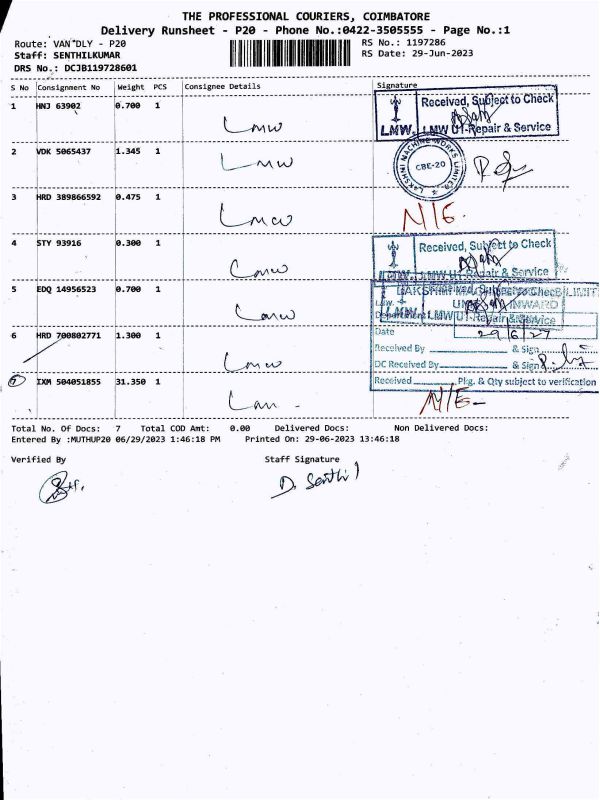 THE PROFESSIONAL COURIERS, COIMBATORE
Delivery Runsheet - P20 - Phone No.:0422-3505555 - Page No.:1
Route: VAN DLY - P20
RS No.: 1197286
Staff: SENTHILKUMAR
RS Date: 29-Jun-2023
DRS No.: DCJB119728601
S No Consignment No Weight PCS Consignee Details Signature
1 HNJ 63902 0.700 1 LMW
Received, Subject to Check
LMW. LMW U1-Repair & Service
2 VDK 5065437 1.345 1 LMW
LAKSHMI MACHINE WORKS LIMITED
CBE-20
3 HRD 389866592 0.475 1 LMW N/E.
4 STY 93916 0.300 1 LMW
Received, Subject to Check
LMW. LMW U1-Repair & Service
5 EDQ 14956523 0.700 1 LMW
INWARD
LMW. LMW U1-Repair & Service
6 HRD 700802771 1.300 1 LMW
Date
Received By & Sign
DC Received By & Sign
7 IXM 504051855 31.350 1
Received Pkg. & Qty subject to verification
N/E-
Total No. Of Docs: 7 Total COD Amt: 0.00 Delivered Docs: Non Delivered Docs:
Entered By :MUTHUP20 06/29/2023 1:46:18 PM Printed On: 29-06-2023 13:46:18
Verified By Staff Signature
D. Senthil